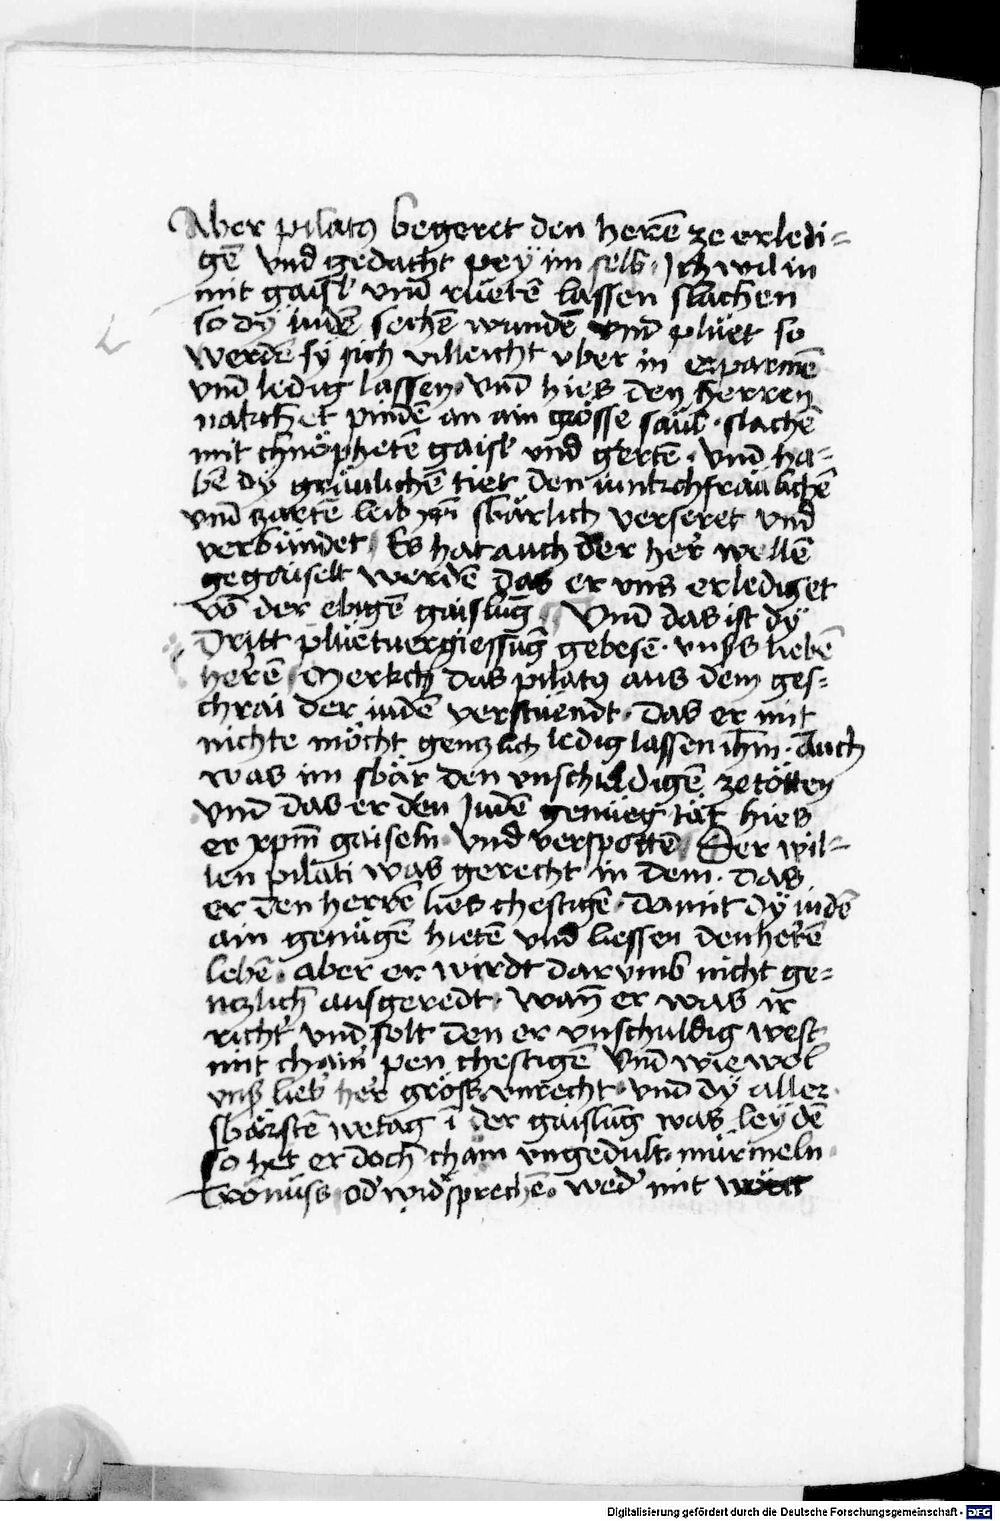 Aber pilatꝯ begeret den herrē ze erledi=
gē vnd gedacht pey im selb. Ich wil in
mit gaisl vnd rüetē lassen slachen
so dÿ judē sechē wundē vnd plüet so
werdē sÿ sich villeicht vber in erparmē
vnd ledig lassen. Vnd hies den herren
nakchet pindē an ain grösse säul. slachē
mit chnöphetē gaisl vnd gertē. vnd ha=
bē dÿ gräulichē tier den junkchfräulichē
vnd zartē leib xpī sbärlich verseret vnd
verbundet. Es hat auch der her wellē
gegaiselt werdē das er vns erlediget
vō der ebigē gaislūg. Vnd das ist dÿ
Dritt plüetuergiessūg gebesē. vnss liebē
herē. Merkch das pilatꝯ aus dem ges=
chrai der judē verstuendt. das er mit
nichte möcht genczlich ledig lassen ihm. Auch
was im sbär den vnschuldigē ze tötten
vnd das er den Judē genueg tät hies
er xpm gaiseln. vnd verspottē. Der wil=
len pilati was gerecht in dem. das
er den herrē lies chestigē. damit dÿ judē
ain genügē hietē vnd liessen den herē
lebē. aber er wirdt darvmb nicht ge=
nczlich ausgeredt. wañ er was ir
richt vnd solt den er vnschuldig west
mit chaīr pen chestigē vnd wie wol
vnß lieb her gröss vnrecht. vnd dÿ aller
sbärstē wetag ī der gaislūg was leÿdē
so het er doch cham vngedult. mürmeln
vō nüss od widsprechē. wed mit
Digitalisierung gefördert durch die Deutsche Forschungsgemeinschaft - DFG